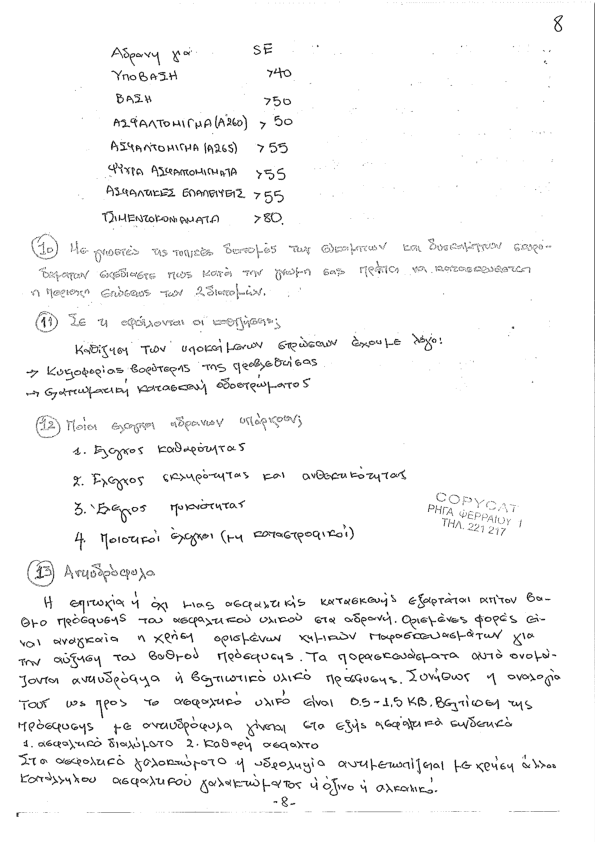 8
Αδρανη για SE
ΥΠΟΒΑΣΗ >40
ΒΑΣΗ >50
ΑΣΦΑΛΤΟΜΙΓΜΑ (Α260) >50
ΑΣΦΑΛΤΟΜΙΓΜΑ (Α265) >55
ΨΥΧΡΑ ΑΣΦΑΛΤΟΜΙΓΜΑΤΑ >55
ΑΣΦΑΛΤΙΚΕΣ ΕΠΑΛΕΙΨΕΙΣ >55
ΤΣΙΜΕΝΤΟΚΟΝΙΑΜΑΤΑ >80
10 Με γνωστές τις τυπικές διατομές των εύκαμπτων και δυσκάμπτων
σχεδιαστε πως κατά την γνωμη σας πρέπει να κατασκευαστει
η περιοχη ενώσεως των 2 διατομών.
11 Σε τι οφείλονται οι καθιζήσεις;
Καθίζηση των υποκείμενων στρώσεων έχουμε λόγω:
→ Κυκλοφορίας βαρύτερης της προβλεθείσας
→ Ελαττωματική κατασκευή οδοστρώματος
12 Ποίοι έλεγχοι αδρανων υπάρχουν;
1. Έλεγχος καθαρότητας
2. Έλεγχος σκληρότητας και ανθεκτικότητας
3. Έλεγχος πυκνότητας
4. Ποιοτικοί έλεγχοι (μη καταστροφικοί)
COPYCAT
ΡΗΓΑ ΦΕΡΡΑΙΟΥ 1
ΤΗΛ. 221 217
13 Αντιυδρόφυλα
Η επιτυχία ή όχι μιας ασφαλτικής κατασκευής εξαρτάται απ'τον βα-
θμο πρόσφυσης του ασφαλτικού υλικού στα αδρανή. Ορισμένες φορές εί-
ναι αναγκαία η χρήση ορισμένων χημικών παρασκευασμάτων για
την αύξηση του βαθμού πρόσφυσης. Τα παρασκευάσματα αυτά ονομά-
ζονται αντιυδρόφιλα ή βελτιωτικό υλικό πρόσφυσης. Συνήθως η αναλογία
τους ως προς το ασφαλτικό υλικό είναι 0.5-1,5 ΚΒ. Βελτίωση της
πρόσφυσης με αντιυδρόφυλα γίνεται στα εξής ασφαλτικά συνδετικά
1. ασφαλτικό διαλύματα 2. καθαρή ασφαλτο
Στα ασφαλτικά γαλακτώματα η υδροφιλία αντιμετωπίζεται με χρήση άλλου
κατάλληλου ασφαλτικού γαλακτώματος ή όξινο ή αλκαλικό.
-8-